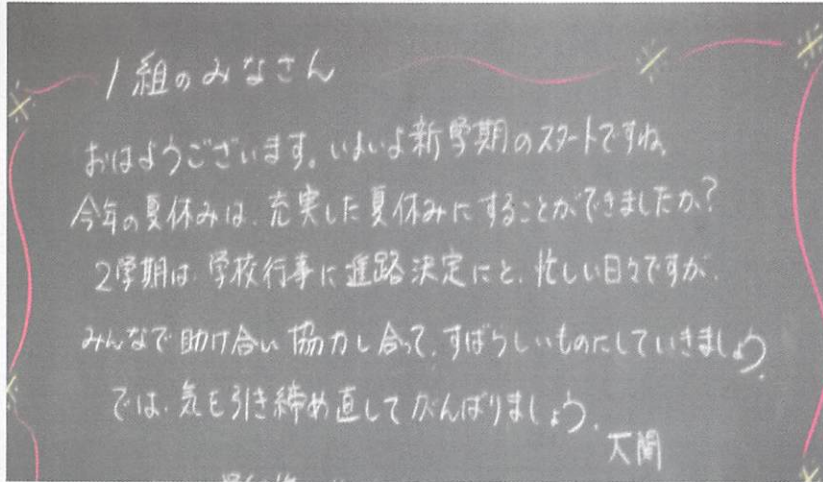 1組のみなさん
おはようございます。いよいよ新学期のスタートですね。
今年の夏休みは、充実した夏休みにすることができましたか?
2学期は、学校行事に進路決定にと、忙しい日々ですが、
みんなで助け合い協力し合って、すばらしいものにしていきましょう。
では、気を引き締め直してがんばりましょう。
大関